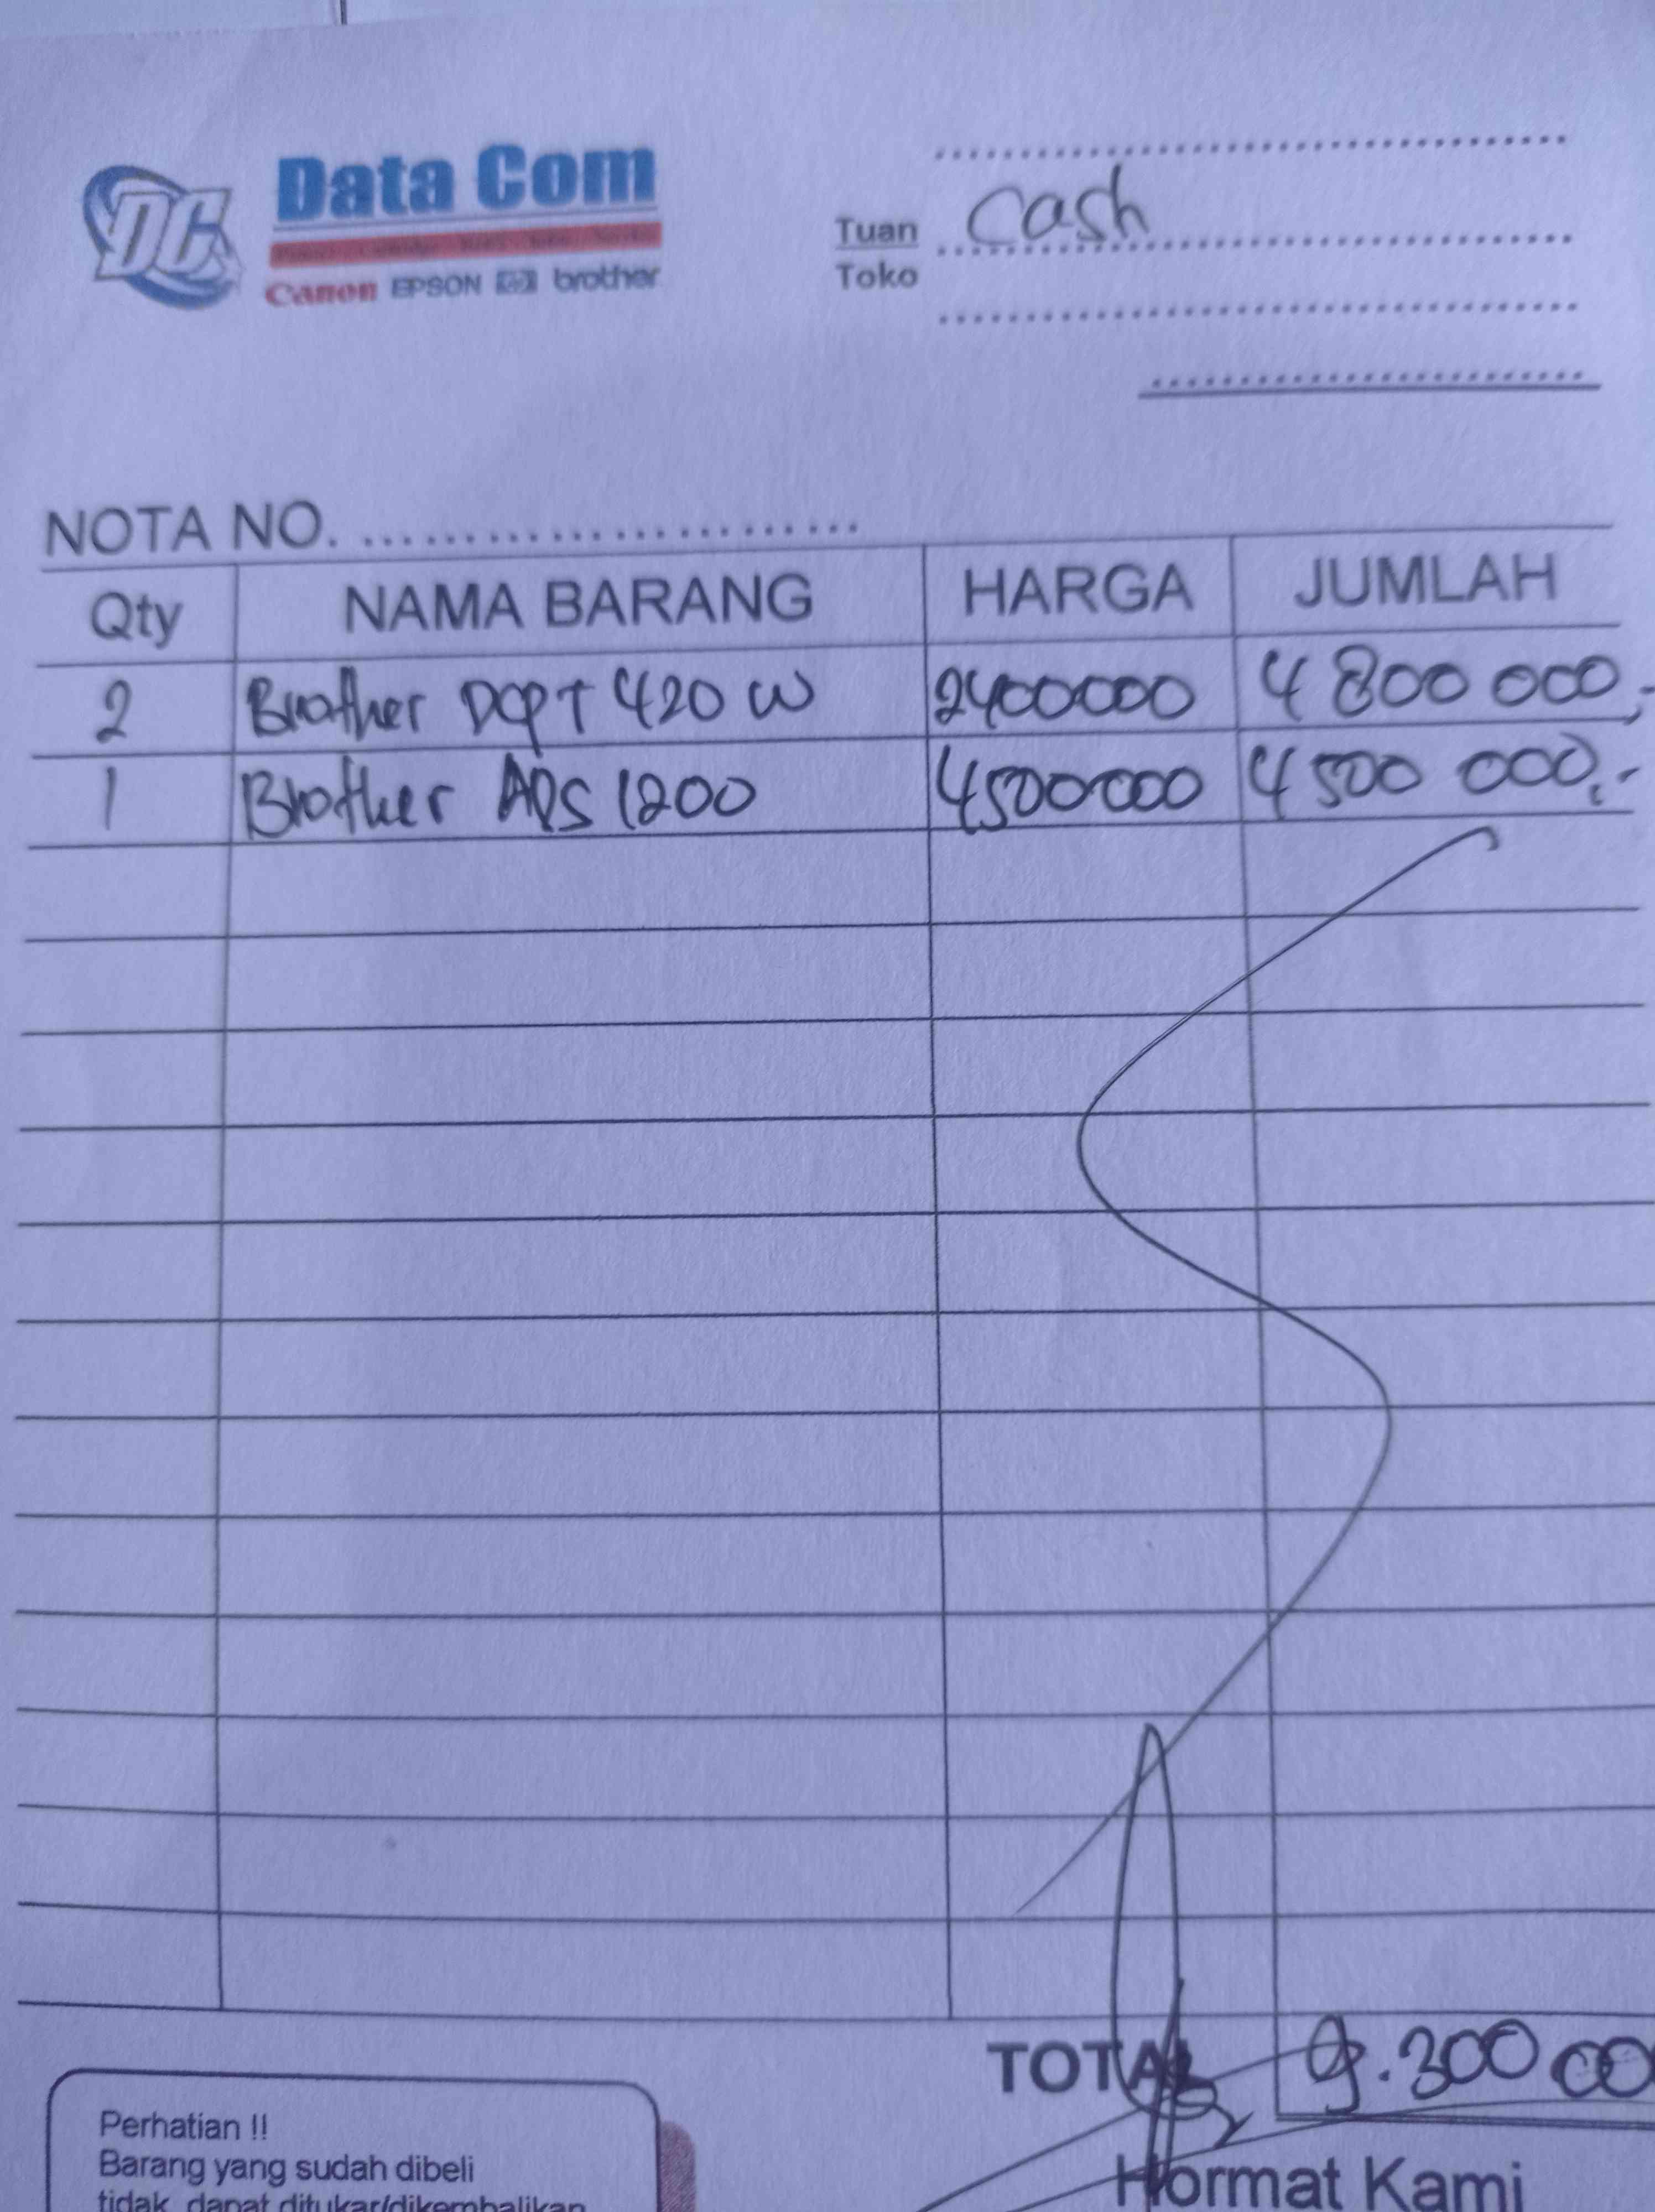 DC Data Com
Canon EPSON hp brother
Tuan Cash
Toko
NOTA NO.
Qty NAMA BARANG HARGA JUMLAH
2 Brother DCPT 420 W 2400000 4 800 000,-
1 Brother ADS 1200 4500000 4 500 000,-
TOTAL 9.300 00
Perhatian !!
Barang yang sudah dibeli
tidak dapat ditukar/dikembalikan
Hormat Kami